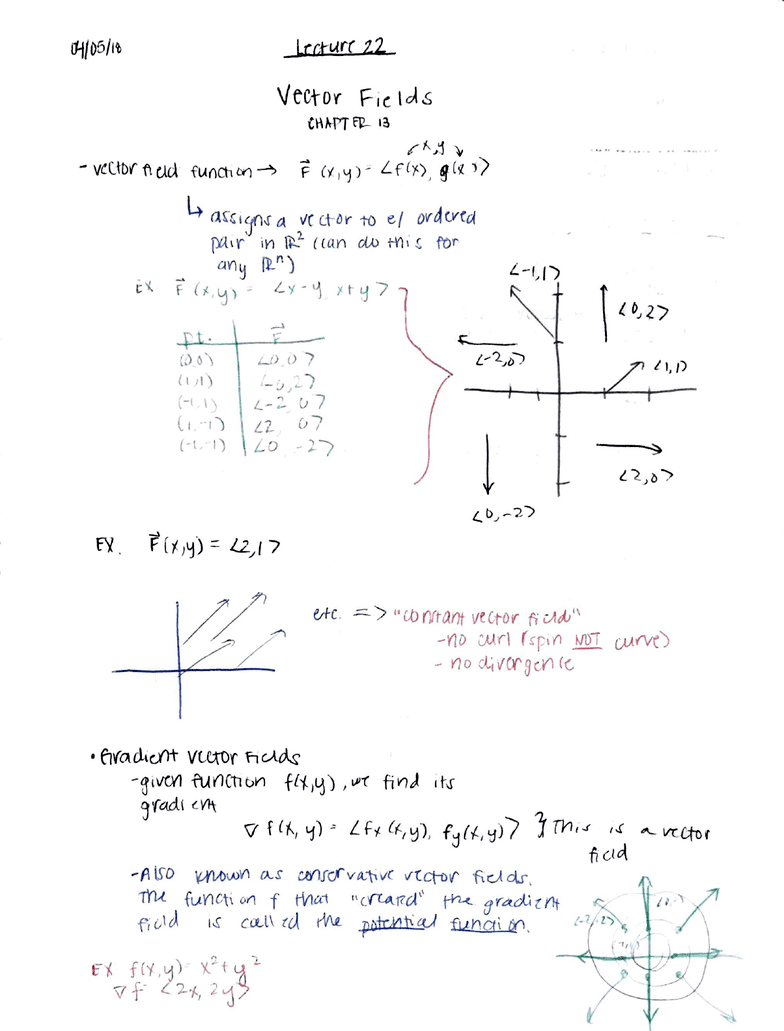 04/05/18
Lecture 22
Vector Fields
CHAPTER 13
x,y
- vector field function → F⃗ (x,y) = <f(x), g(x)>
↳ assigns a vector to e/ ordered
pair in ℝ² (can do this for
any ℝⁿ)
EX F⃗ (x,y) = <x-y, x+y>
pt. F⃗
(0,0) <0,0>
(1,1) <0,2>
(-1,1) <-2, 0>
(1,-1) <2, 0>
(-1,-1) <0, -2>
<-1,1>
<0,2>
<-2,0>
<1,1>
<2,0>
<0,-2>
EX. F⃗(x,y) = <2,1>
etc. => "constant vector field"
- no curl (spin NOT curve)
- no divergence
• Gradient Vector Fields
- given function f(x,y), we find its
gradient
∇ f(x, y) = <fx (x,y), fy(x,y)> } This is a vector
field
- Also known as conservative vector fields.
The function f that "creard" the gradient
field is called the potential function.
EX f(x,y) = x²+y²
∇f = <2x, 2y>